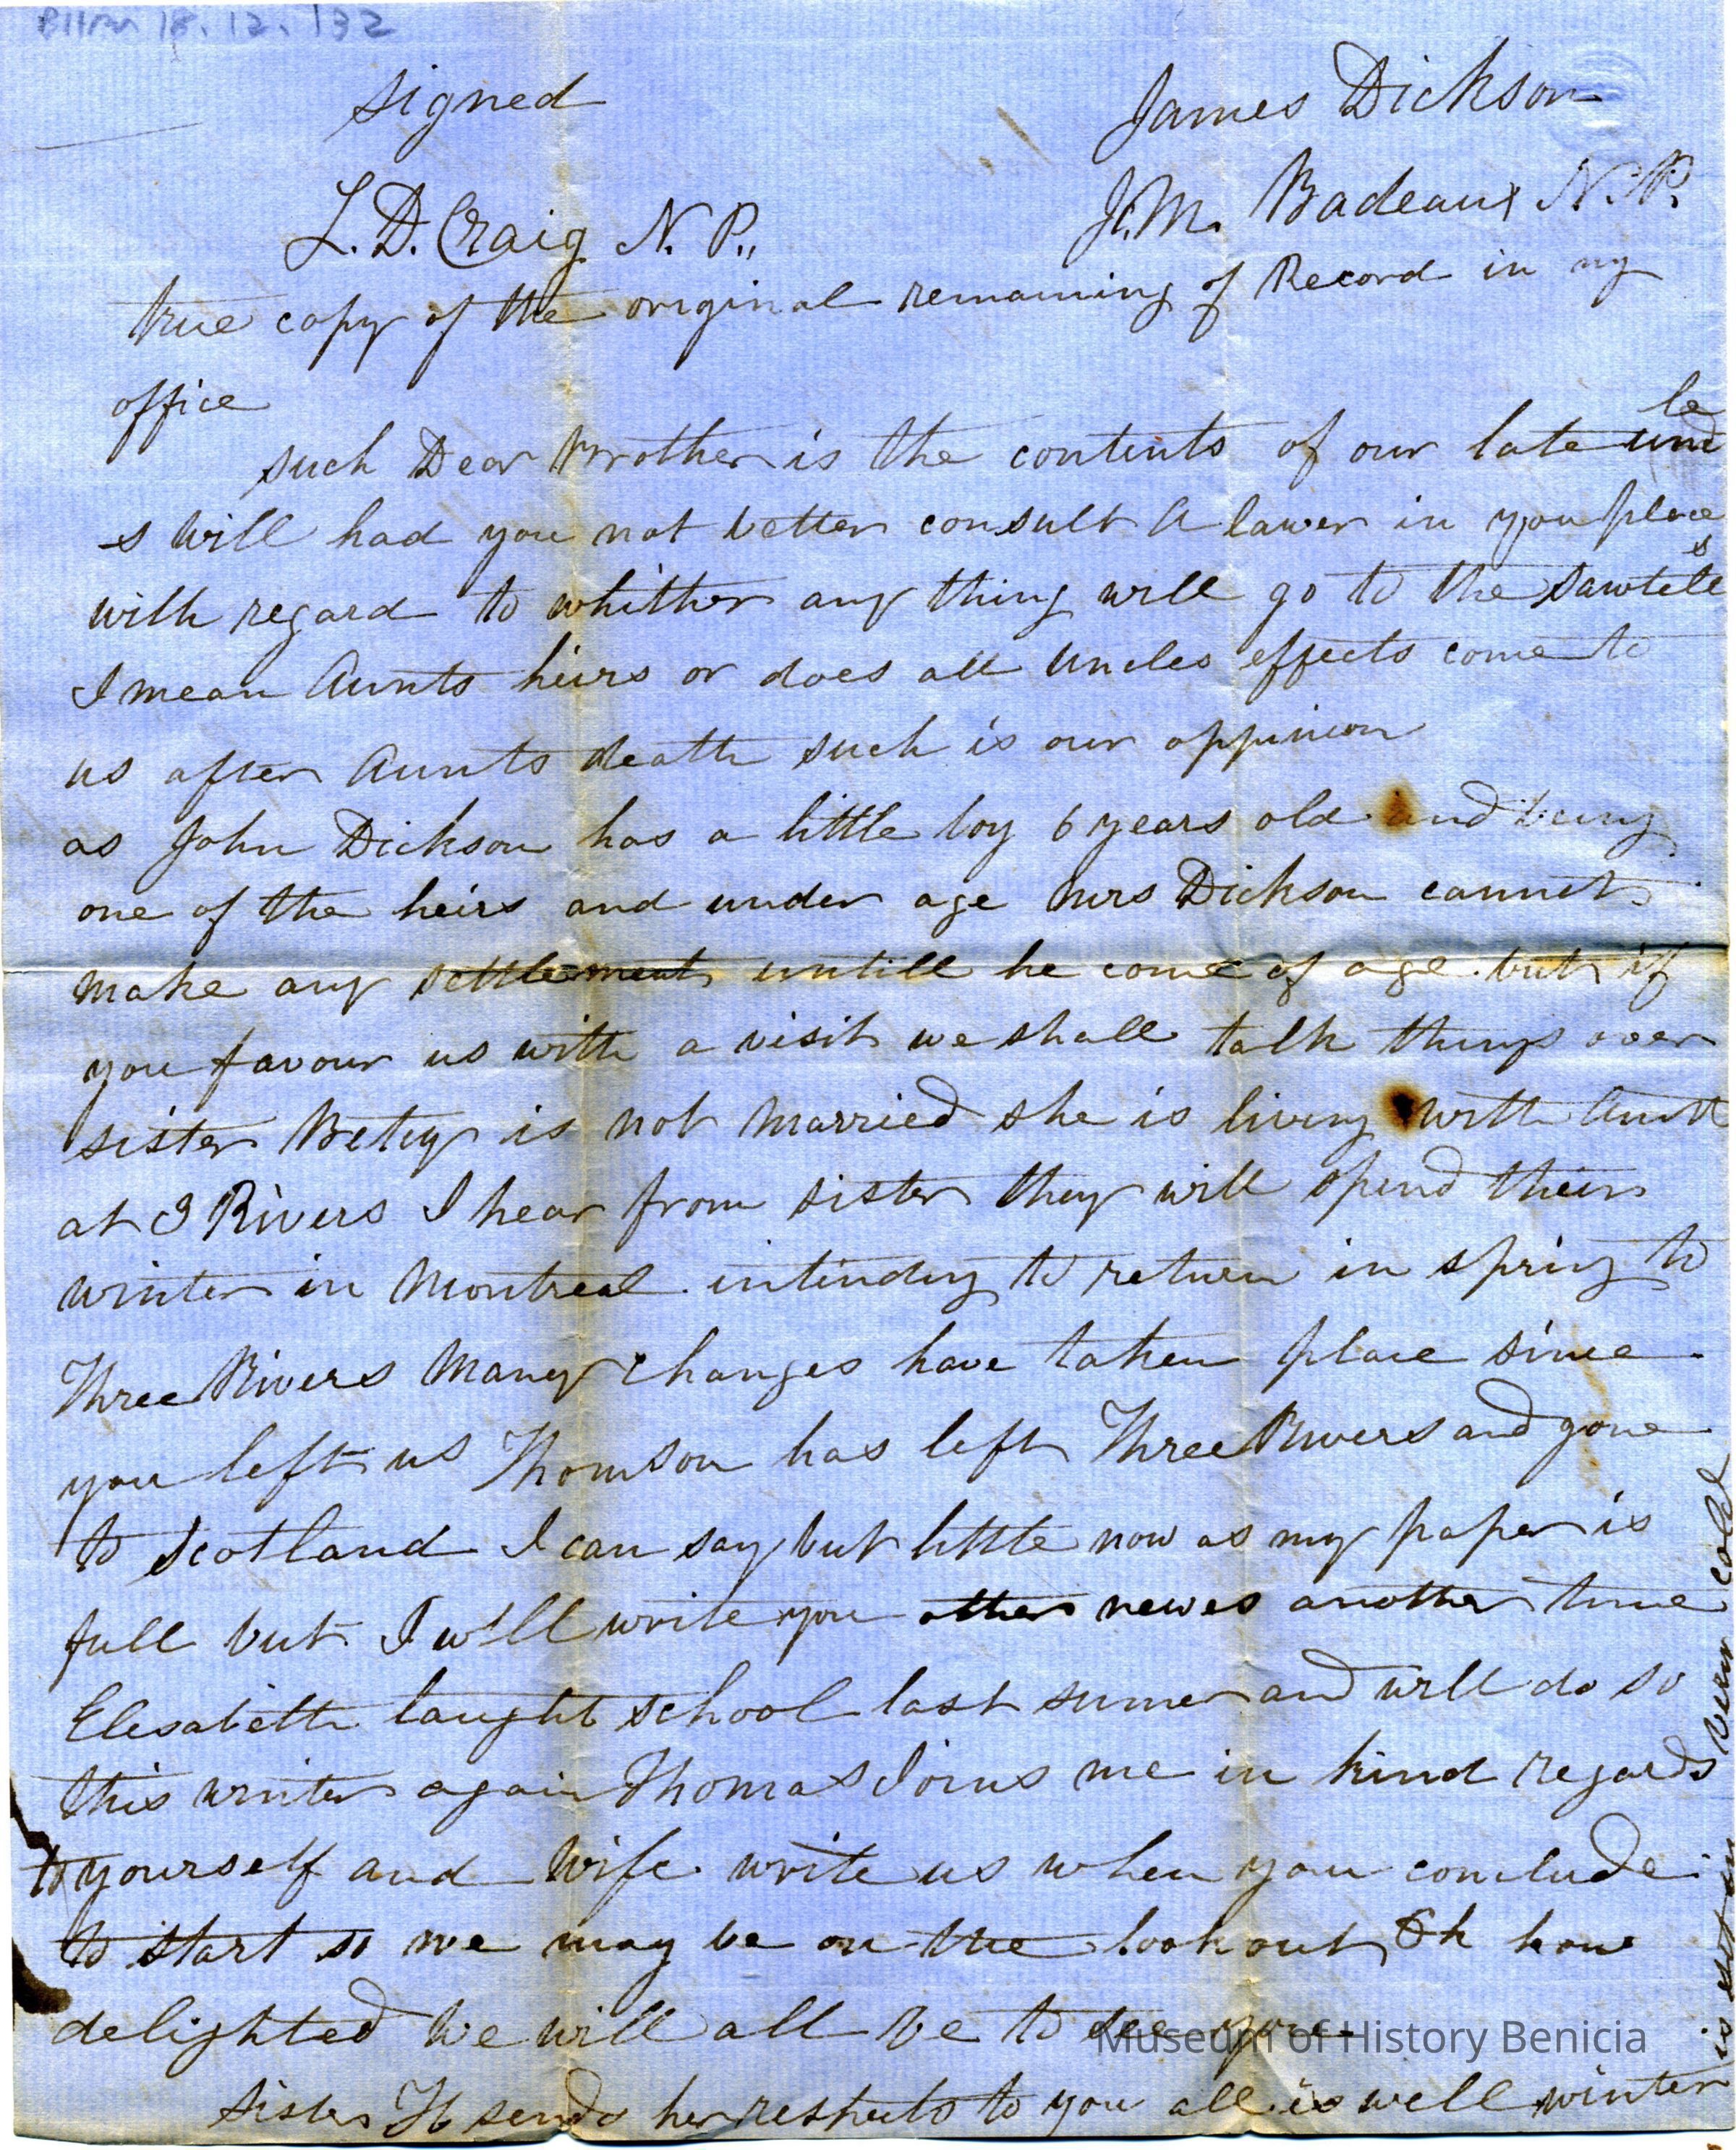 BHM 18.12.132
signed James Dickson
L. D. Craig N. P., J. M. Badeaux N. P.
true copy of the original remaining of Record in my
office
such Dear Brother is the contents of our late uncle
s will had you not better consult A lawer in you place
with regard to whither any thing will go to the Sawtells
I mean Aunts heirs or does all uncles effects come to
us after Aunts death such is our oppinion
as John Dickson has a little boy 6 years old and being
one of the heirs and under age Mrs Dickson cannot
make any settlement untill he come of age. but if
you favour us with a visit we shall talk things over
sister Betsy is not married she is living with Aunt
at 3 Rivers I hear from sister they will spend their
winter in Montreal. intending to return in spring to
Three Rivers Many changes have taken place since
you left us Thomson has left Three Rivers and gone
to Scotland I can say but little now as my paper is
full but I will write you other newes another time
Elesabeth taught school last sumer and will do so
this winter again Thomas Joins me in kind regards
to yourself and Wife. write us when you conclude
to start so we may be on the look out Oh how
delighted we will all be to see you-
Sister H sends her respects to you all is well winter
is set in been cold
Museum of History Benicia